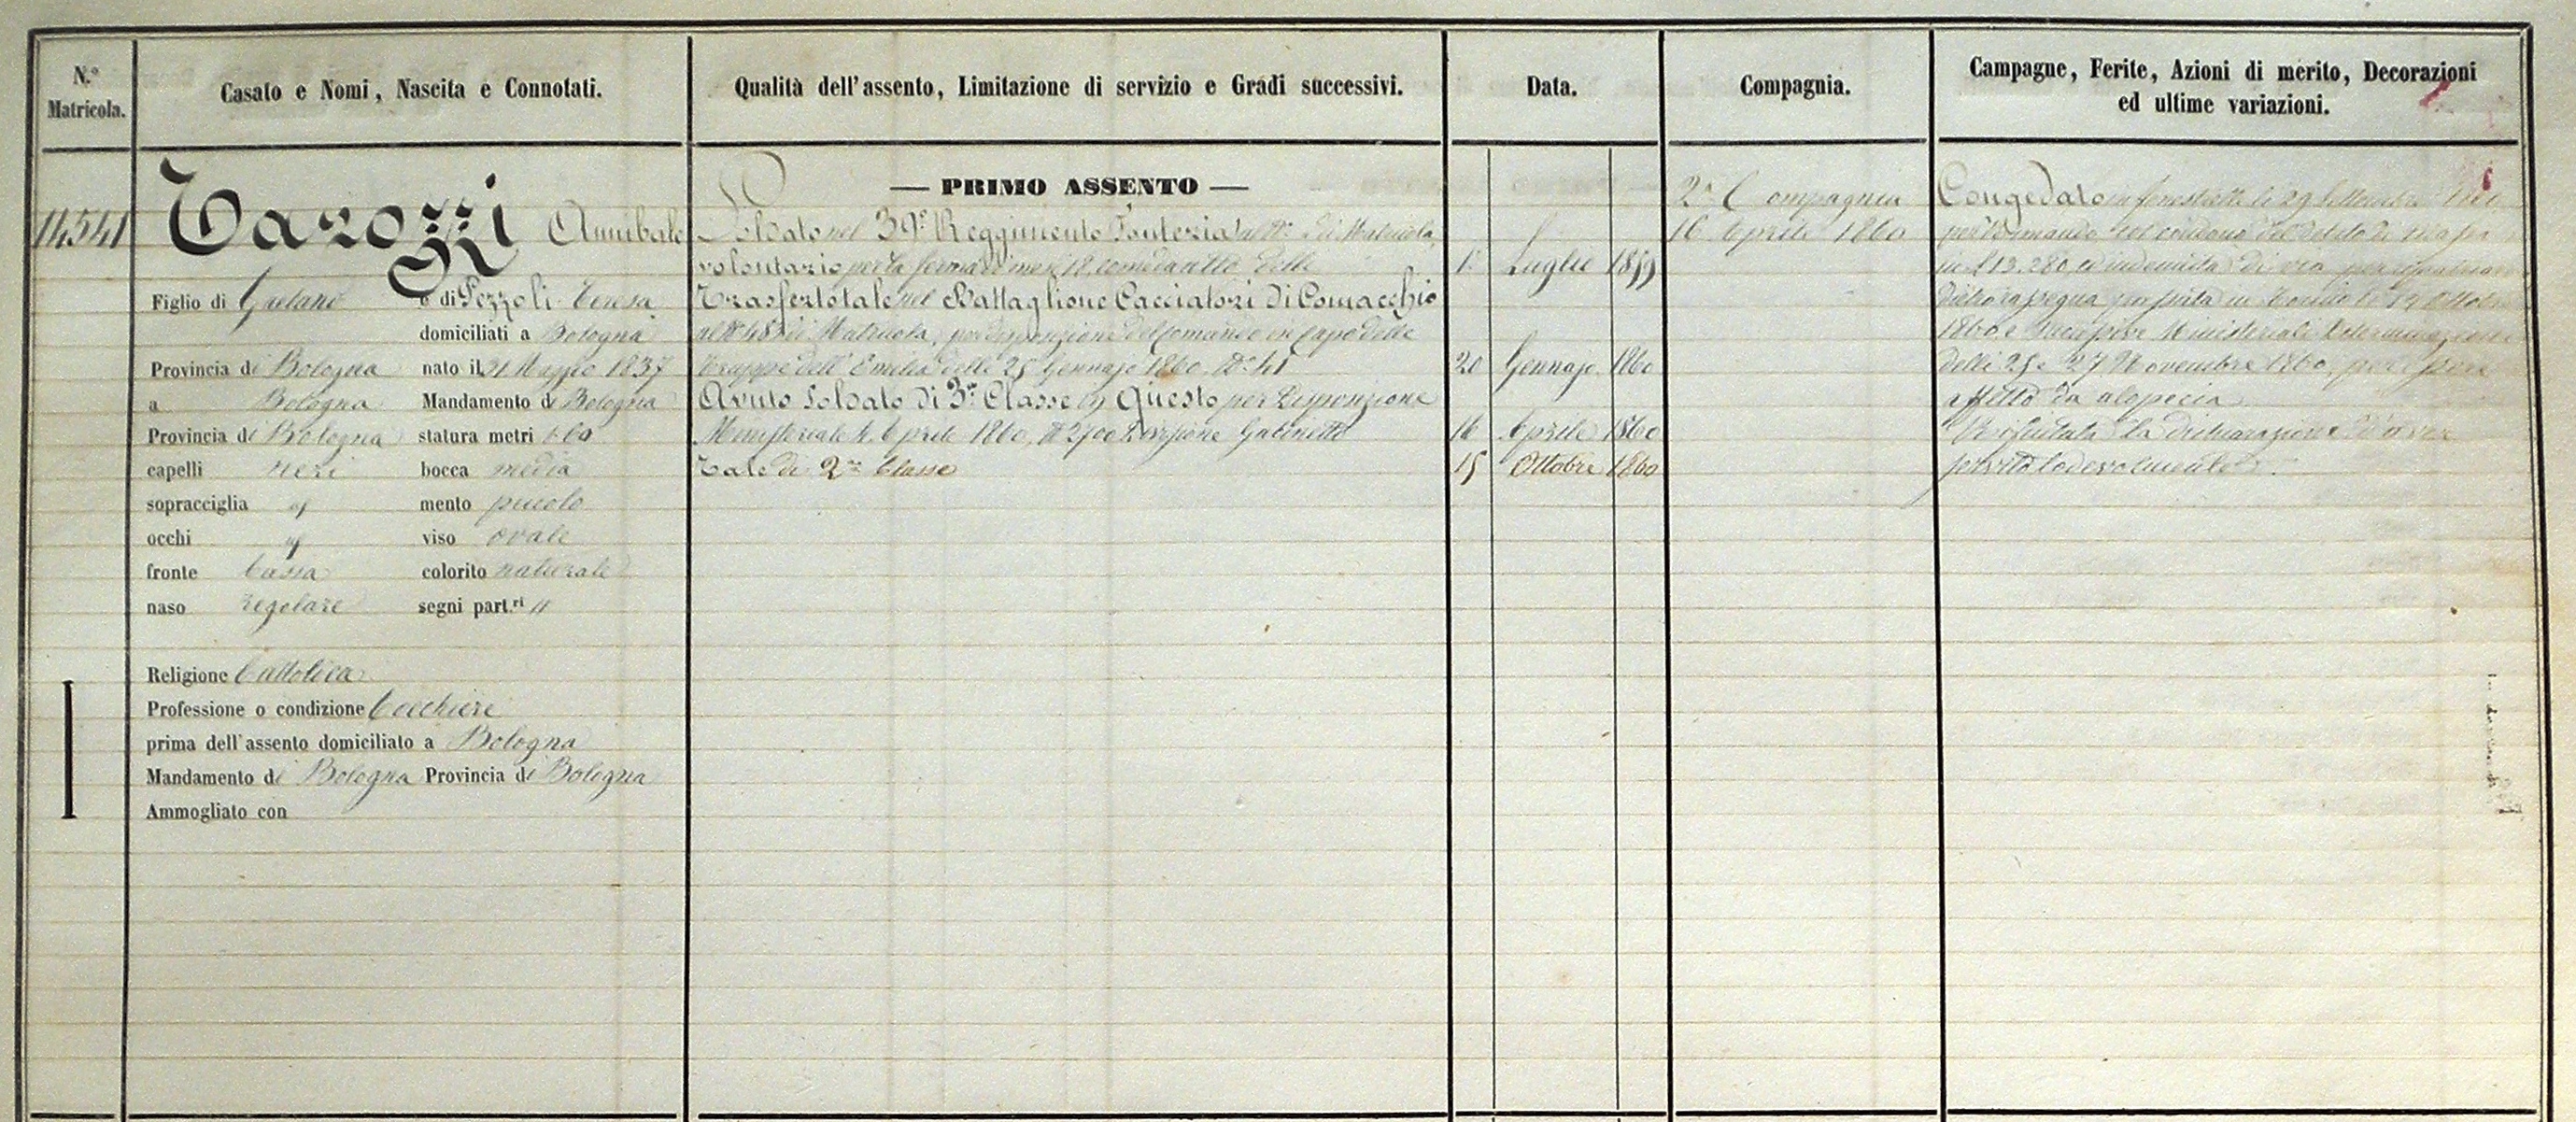 N.º
Matricola.
Casato e Nomi, Nascita e Connotati.
Qualità dell'assento, Limitazione di servizio e Gradi successivi.
Data.
Compagnia.
Campagne, Ferite, Azioni di merito, Decorazioni
ed ultime variazioni.
14541
Tarozzi Annibale
Figlio di Gaetano e di Pezzoli Teresa
domiciliati a Bologna
Provincia di Bologna nato il 21 Maggio 1837
a Bologna Mandamento di Bologna
Provincia di Bologna statura metri 1.60
capelli neri bocca media
sopracciglia mento piccolo
occhi viso ovale
fronte bassa colorito naturale
naso regolare segni part.ri //
Religione Cattolica
Professione o condizione Cocchiere
prima dell'assento domiciliato a Bologna
Mandamento di Bologna Provincia di Bologna
Ammogliato con
— PRIMO ASSENTO —
Soldato nel 39º Reggimento Fanteria al Nº di Matricola,
volontario per la ferma di mesi 18 delli 1º Luglio 1859
Trasferto tale nel Battaglione Cacciatori di Comacchio
al Nº di Matricola, per disposizione del Comando in Capo delle
Truppe dell'Emilia delli 25 Gennajo 1860 Nº 20 Gennajo 1860
Avuto Soldato di 3ª Classe in Questo per Disposizione
Ministeriale 4 Aprile 1860, Nº 2700 Divisione Gabinetto 16 Aprile 1860
Tale di 2ª Classe 15 Ottobre 1860
2ª Compagnia
16 Aprile 1860
Congedato in Fenestrelle li 29 Settembre
per dimanda col condono del debito di massa
in £ 13.280 ed indennità di via per
dietro rassegna passata in Torino li Ottobre
1860 e Ministeriali Determinazioni
delli 25 e 27 Novembre 1860, per essere
affetto da alopecia
Rifiutata la dichiarazione d'aver
servito lodevolmente.